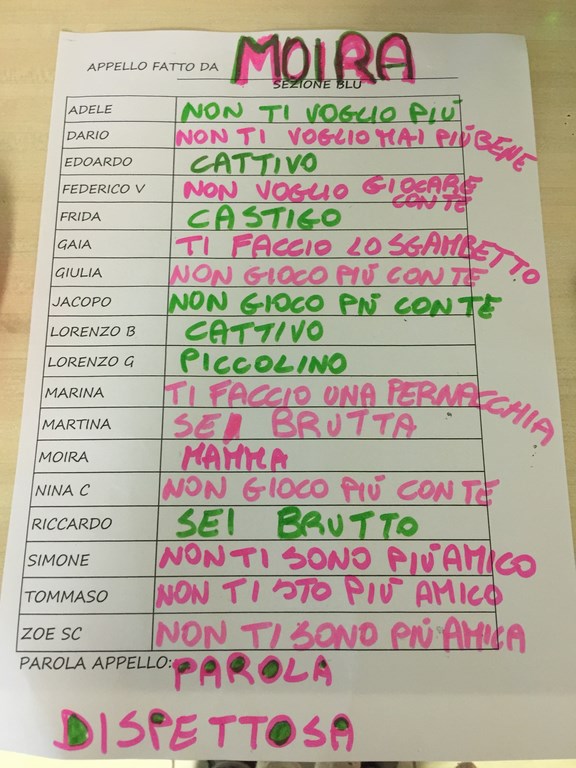 APPELLO FATTO DA MOIRA
SEZIONE BLU
ADELE NON TI VOGLIO PIÚ
DARIO NON TI VOGLIO MAI PIÚ BENE
EDOARDO CATTIVO
FEDERICO V NON VOGLIO GIOCARE
CON TE
FRIDA CASTIGO
GAIA TI FACCIO LO SGAMBETTO
GIULIA NON GIOCO PIÚ CON TE
JACOPO NON GIOCO PIÚ CON TE
LORENZO B CATTIVO
LORENZO G PICCOLINO
MARINA TI FACCIO UNA PERNACCHIA
MARTINA SEI BRUTTA
MOIRA MAMMA
NINA C NON GIOCO PIÚ CON TE
RICCARDO SEI BRUTTO
SIMONE NON TI SONO PIÚ AMICO
TOMMASO NON TI STO PIÚ AMICO
ZOE SC NON TI SONO PIÚ AMICA
PAROLA APPELLO: PAROLA
DISPETTOSA